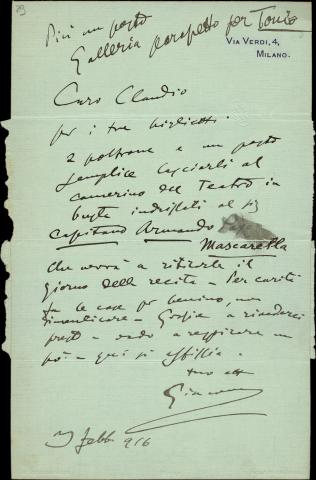 Più un posto
Galleria parapetto per Tonio
VIA VERDI, 4,
MILANO.
Caro Claudio
per i tre biglietti.
2 poltrone e un posto
semplice lasciarli al
camerino del Teatro in
busta indirizzati al
Capitano Armando
Mascarella
che verrà a ritirarle il
giorno della recita - Per carità
fa le cose per benino, non
dimenticare - Grazie a rivederci
presto - vado a
po' - qui si
tuo aff
Giacomo
Febb 916